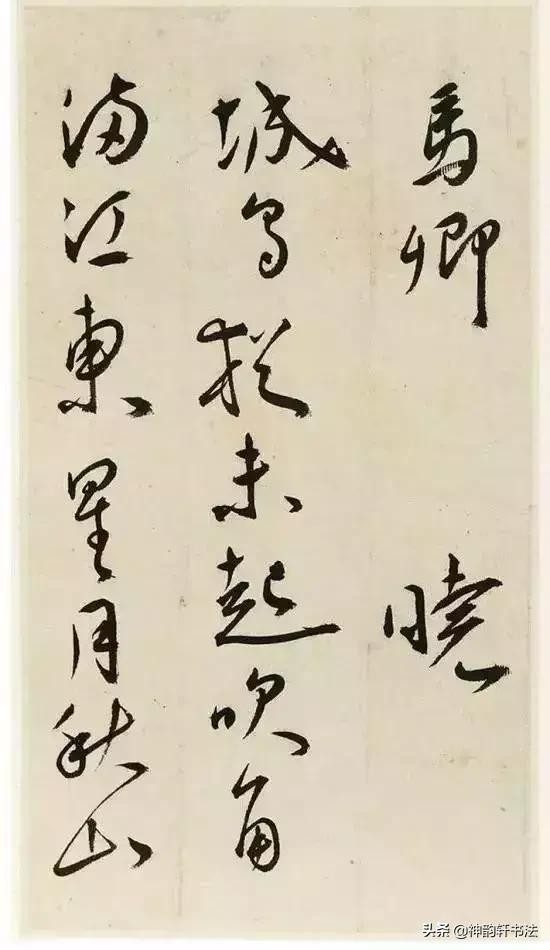 馬卿 曉
城烏猶未起吹角
满江東星月秋山
头条@神韵轩书法